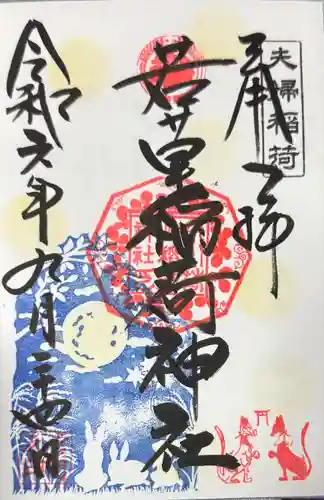 夫婦稲荷
奉拝
若菜稲荷神社
令和六年九月二十四日